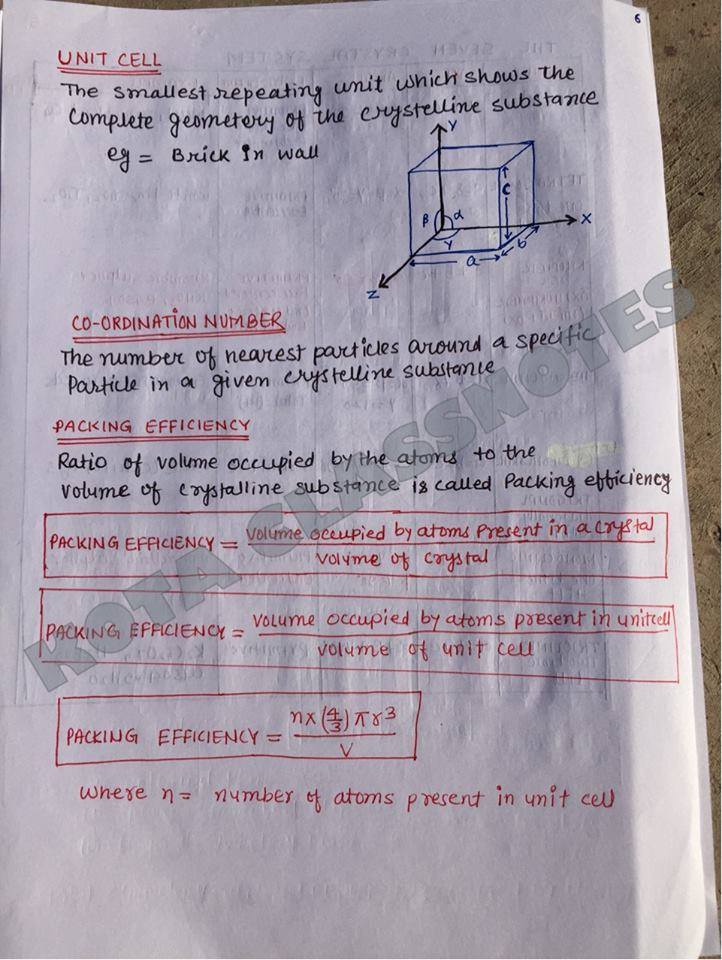 6
UNIT CELL
The smallest repeating unit which shows the
Complete geometery of the crystelline substance
eg = Brick in wall
Y
c
β α
γ
X
a
b
Z
CO-ORDINATION NUMBER
The number of nearest particles around a specific
Particle in a given crystelline substance
PACKING EFFICIENCY
Ratio of volume occupied by the atoms to the
volume of crystalline substance is called Packing efficiency
PACKING EFFICIENCY = volume occupied by atoms Present in a crystal
volume of crystal
PACKING EFFICIENCY = volume occupied by atoms present in unitcell
volume of unit cell
PACKING EFFICIENCY = n×(4/3)πr3
V
where n = number of atoms present in unit cell
KOTA CLASSNOTES